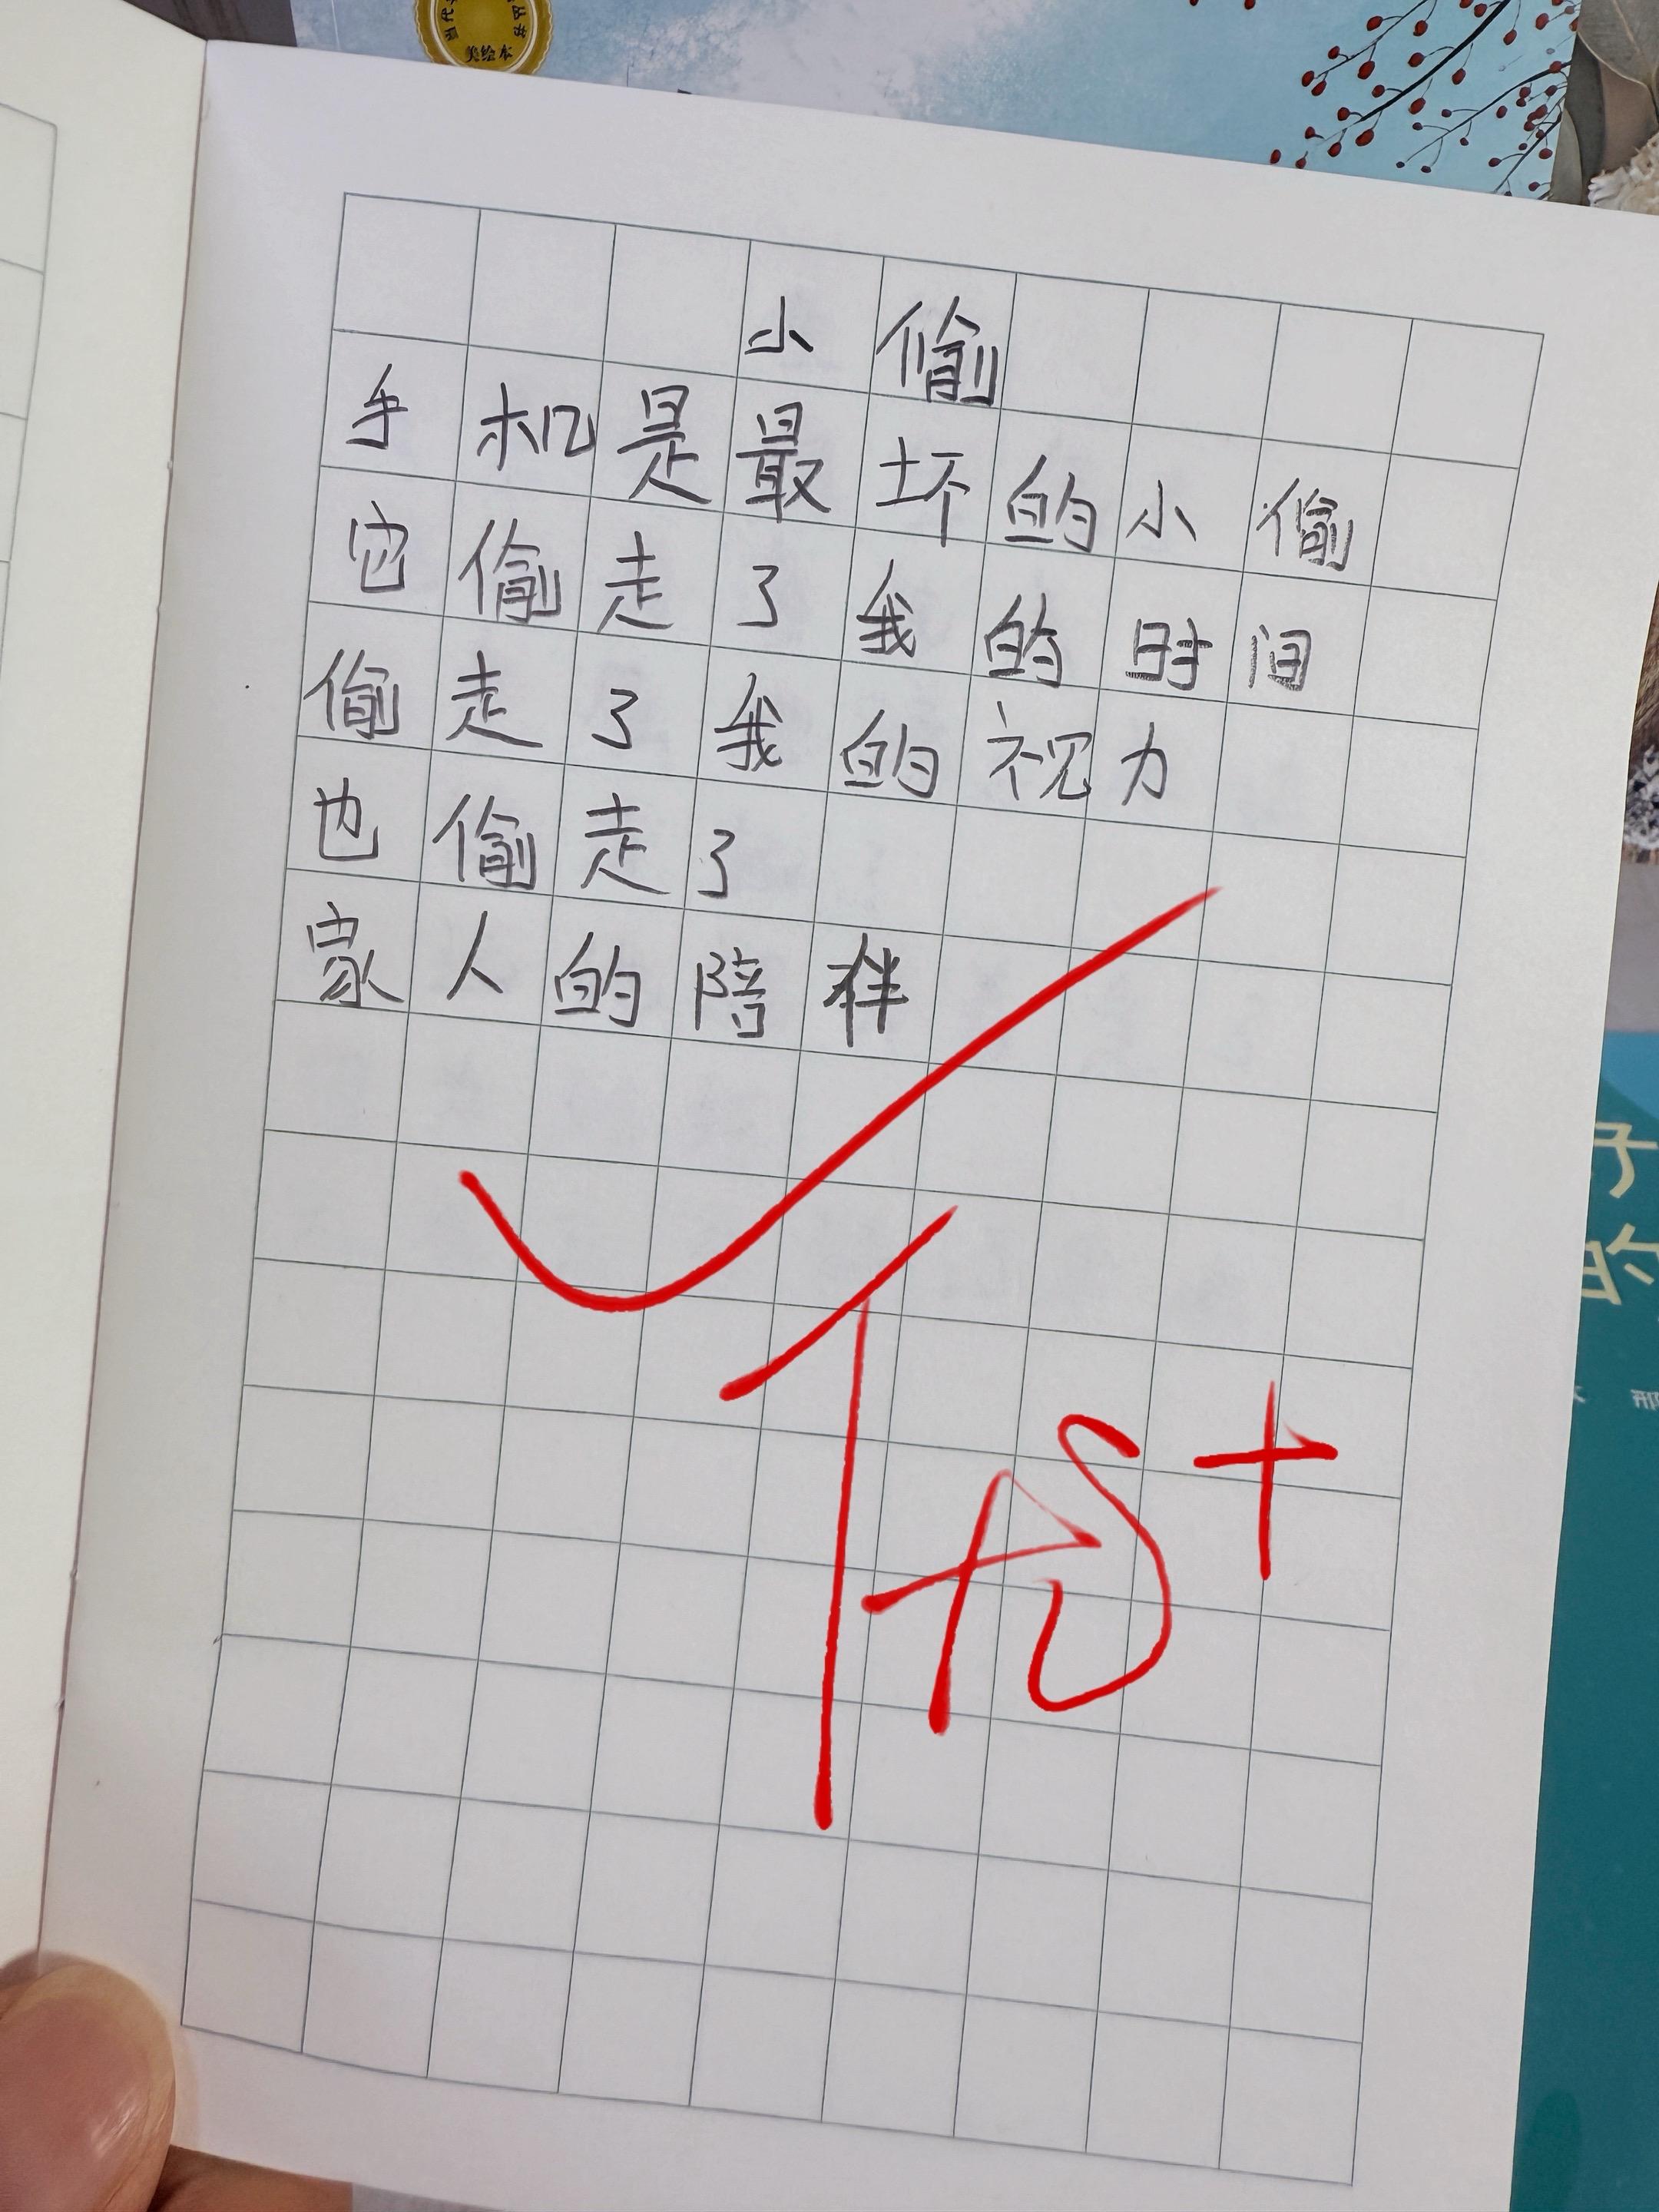 美绘本
小偷
手机是最坏的小偷
它偷走了我的时间
偷走了我的视力
也偷走了
家人的陪伴
子
的